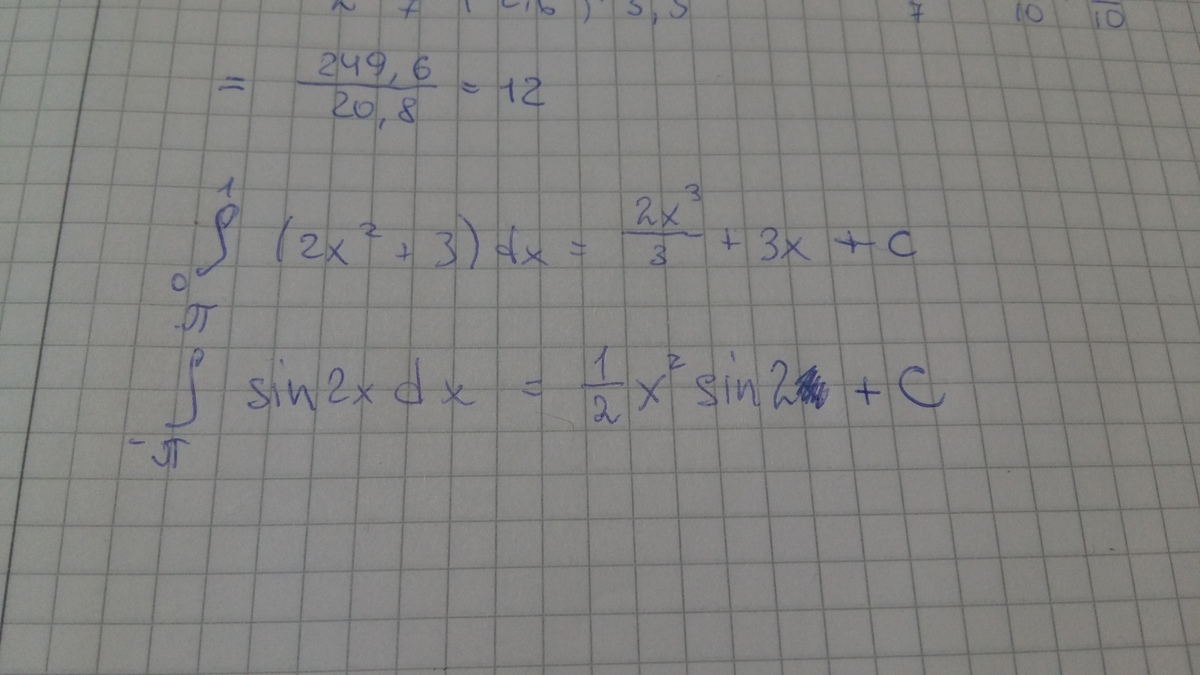 7 10 10
= 249,6 / 20,8 = 12
∫₀¹ (2x² + 3) dx = 2x³/3 + 3x + C
∫₋π^π sin2x dx = 1/2 x² sin2 + C